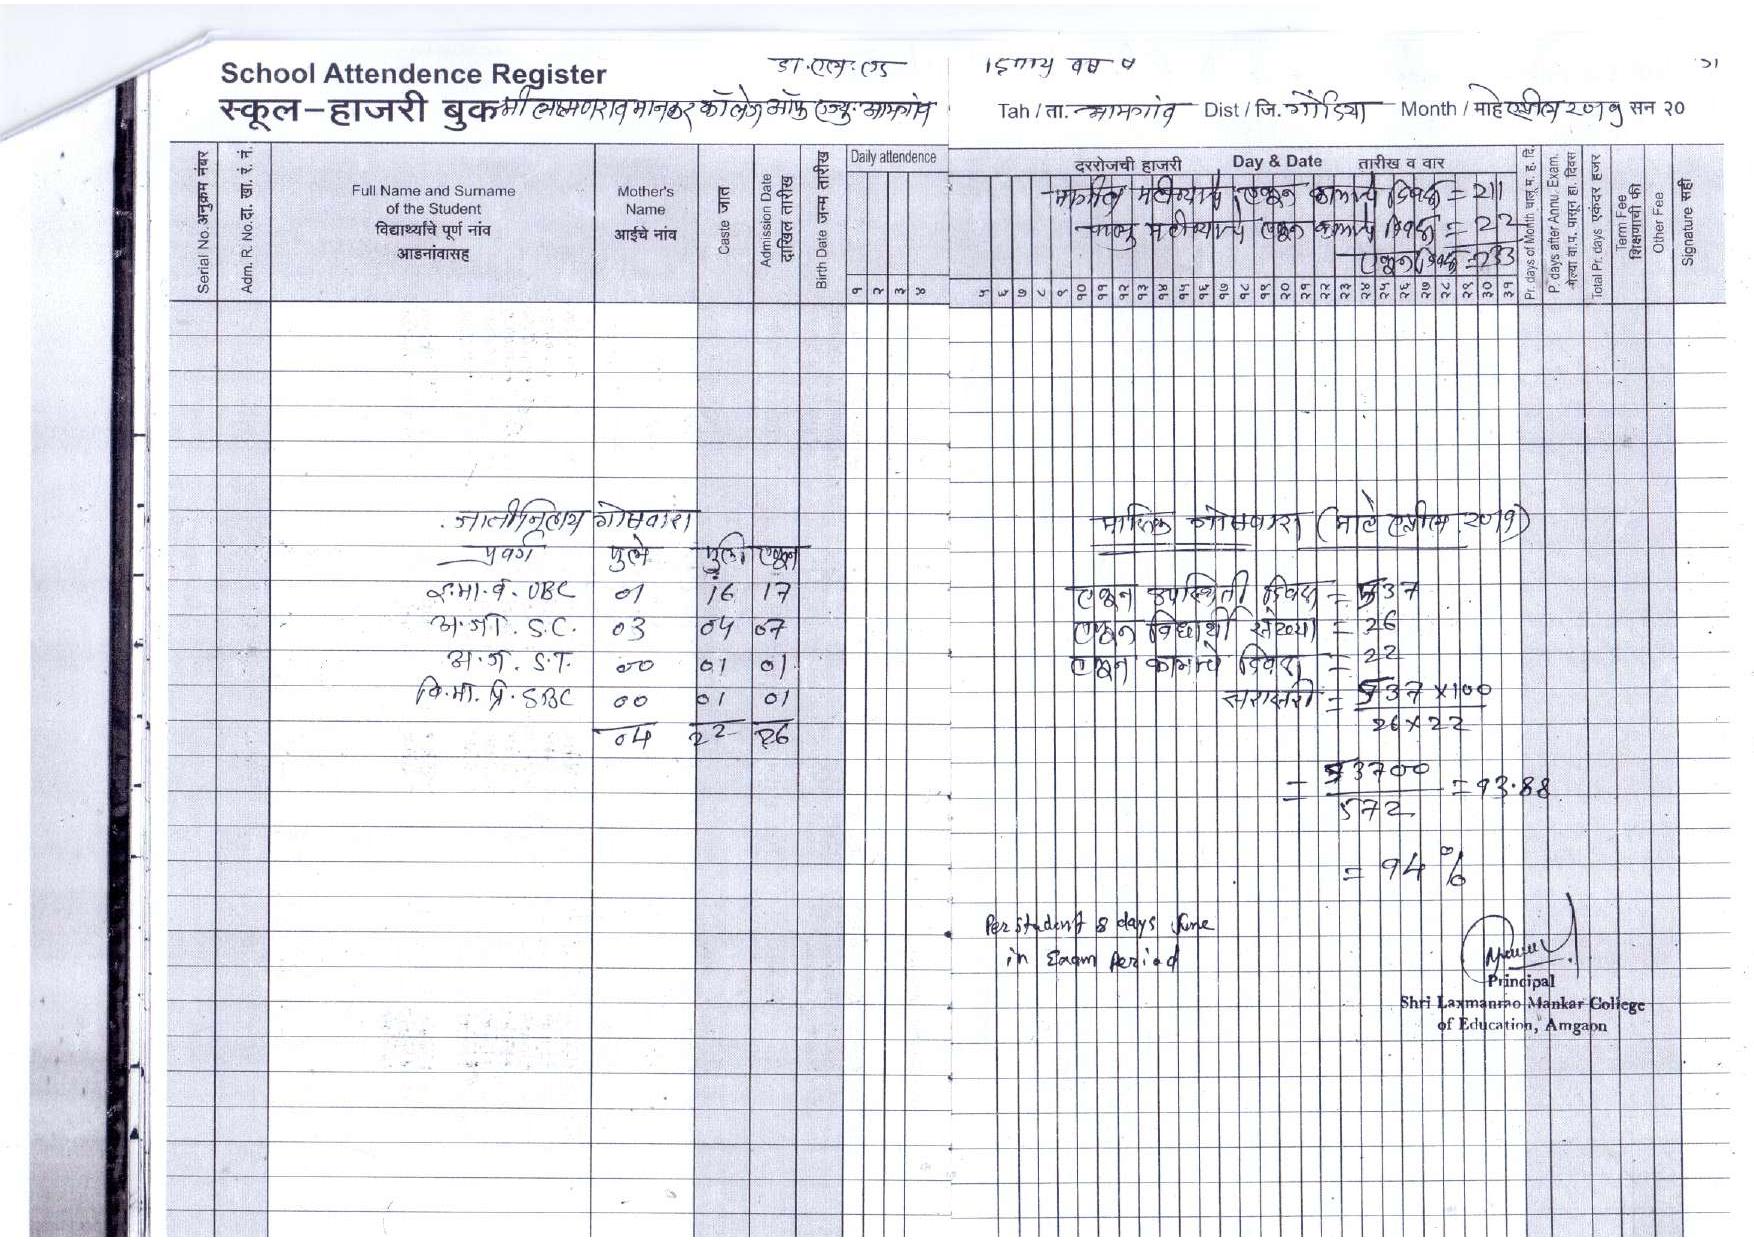 School Attendence Register
डी.एल.एड
द्वितीय वर्ष
स्कूल-हाजरी बुक श्री लक्ष्मणराव मानकर कॉलेज ऑफ एज्यु. आमगांव
Tah / ता. आमगांव Dist / जि. गोंदिया Month / माहे एप्रील २०१९ सन २०
Serial No. अनुक्रम नंबर
Adm. R. No.दा. खा. रं. नं.
Full Name and Surname
of the Student
विद्यार्थ्याचे पूर्ण नांव
आडनांवासह
Mother's
Name
आईचे नांव
Caste जात
Admission Date
दाखिल तारीख
Birth Date जन्म तारीख
Daily attendence
१ २ ३ ४
दररोजची हाजरी Day & Date तारीख व वार
मागील महीन्याचे एकून कामाचे दिवस = 211
चालु महीन्याचे एकून कामाचे दिवस = 22
एकून दिवस = 233
५ ६ ७ ८ ९ १० ११ १२ १३ १४ १५ १६ १७ १८ १९ २० २१ २२ २३ २४ २५ २६ २७ २८ २९ ३० ३१
Pr. days of Month चालू म. ह. दि.
P. days after Annu Exam.
गेल्या वा.प. पासून हा. दिवस
Total Pr. days एकंदर हजर
Term Fee
शिक्षणाची फी
Other Fee
Signature सही
जातीनिहाय गोषवारा
प्रवर्ग मुले मुली एकून
इ.मा.व. OBC 01 16 17
अ.जा. S.C. 03 04 07
अ.ज. S.T. 00 01 01
वि.मा.प्र. SBC 00 01 01
04 22 26
मासिक गोषवारा (माहे एप्रील २०१९)
एकून उपस्थिती दिवस = 537
एकून विद्यार्थी संख्या = 26
एकून कामाचे दिवस = 22
सरासरी = 537 x 100
26 x 22
= 53700
572
= 93.88
= 94 %
Per student 8 days June
in Exam Period
Principal
Shri Laxmanrao Mankar College
of Education, Amgaon